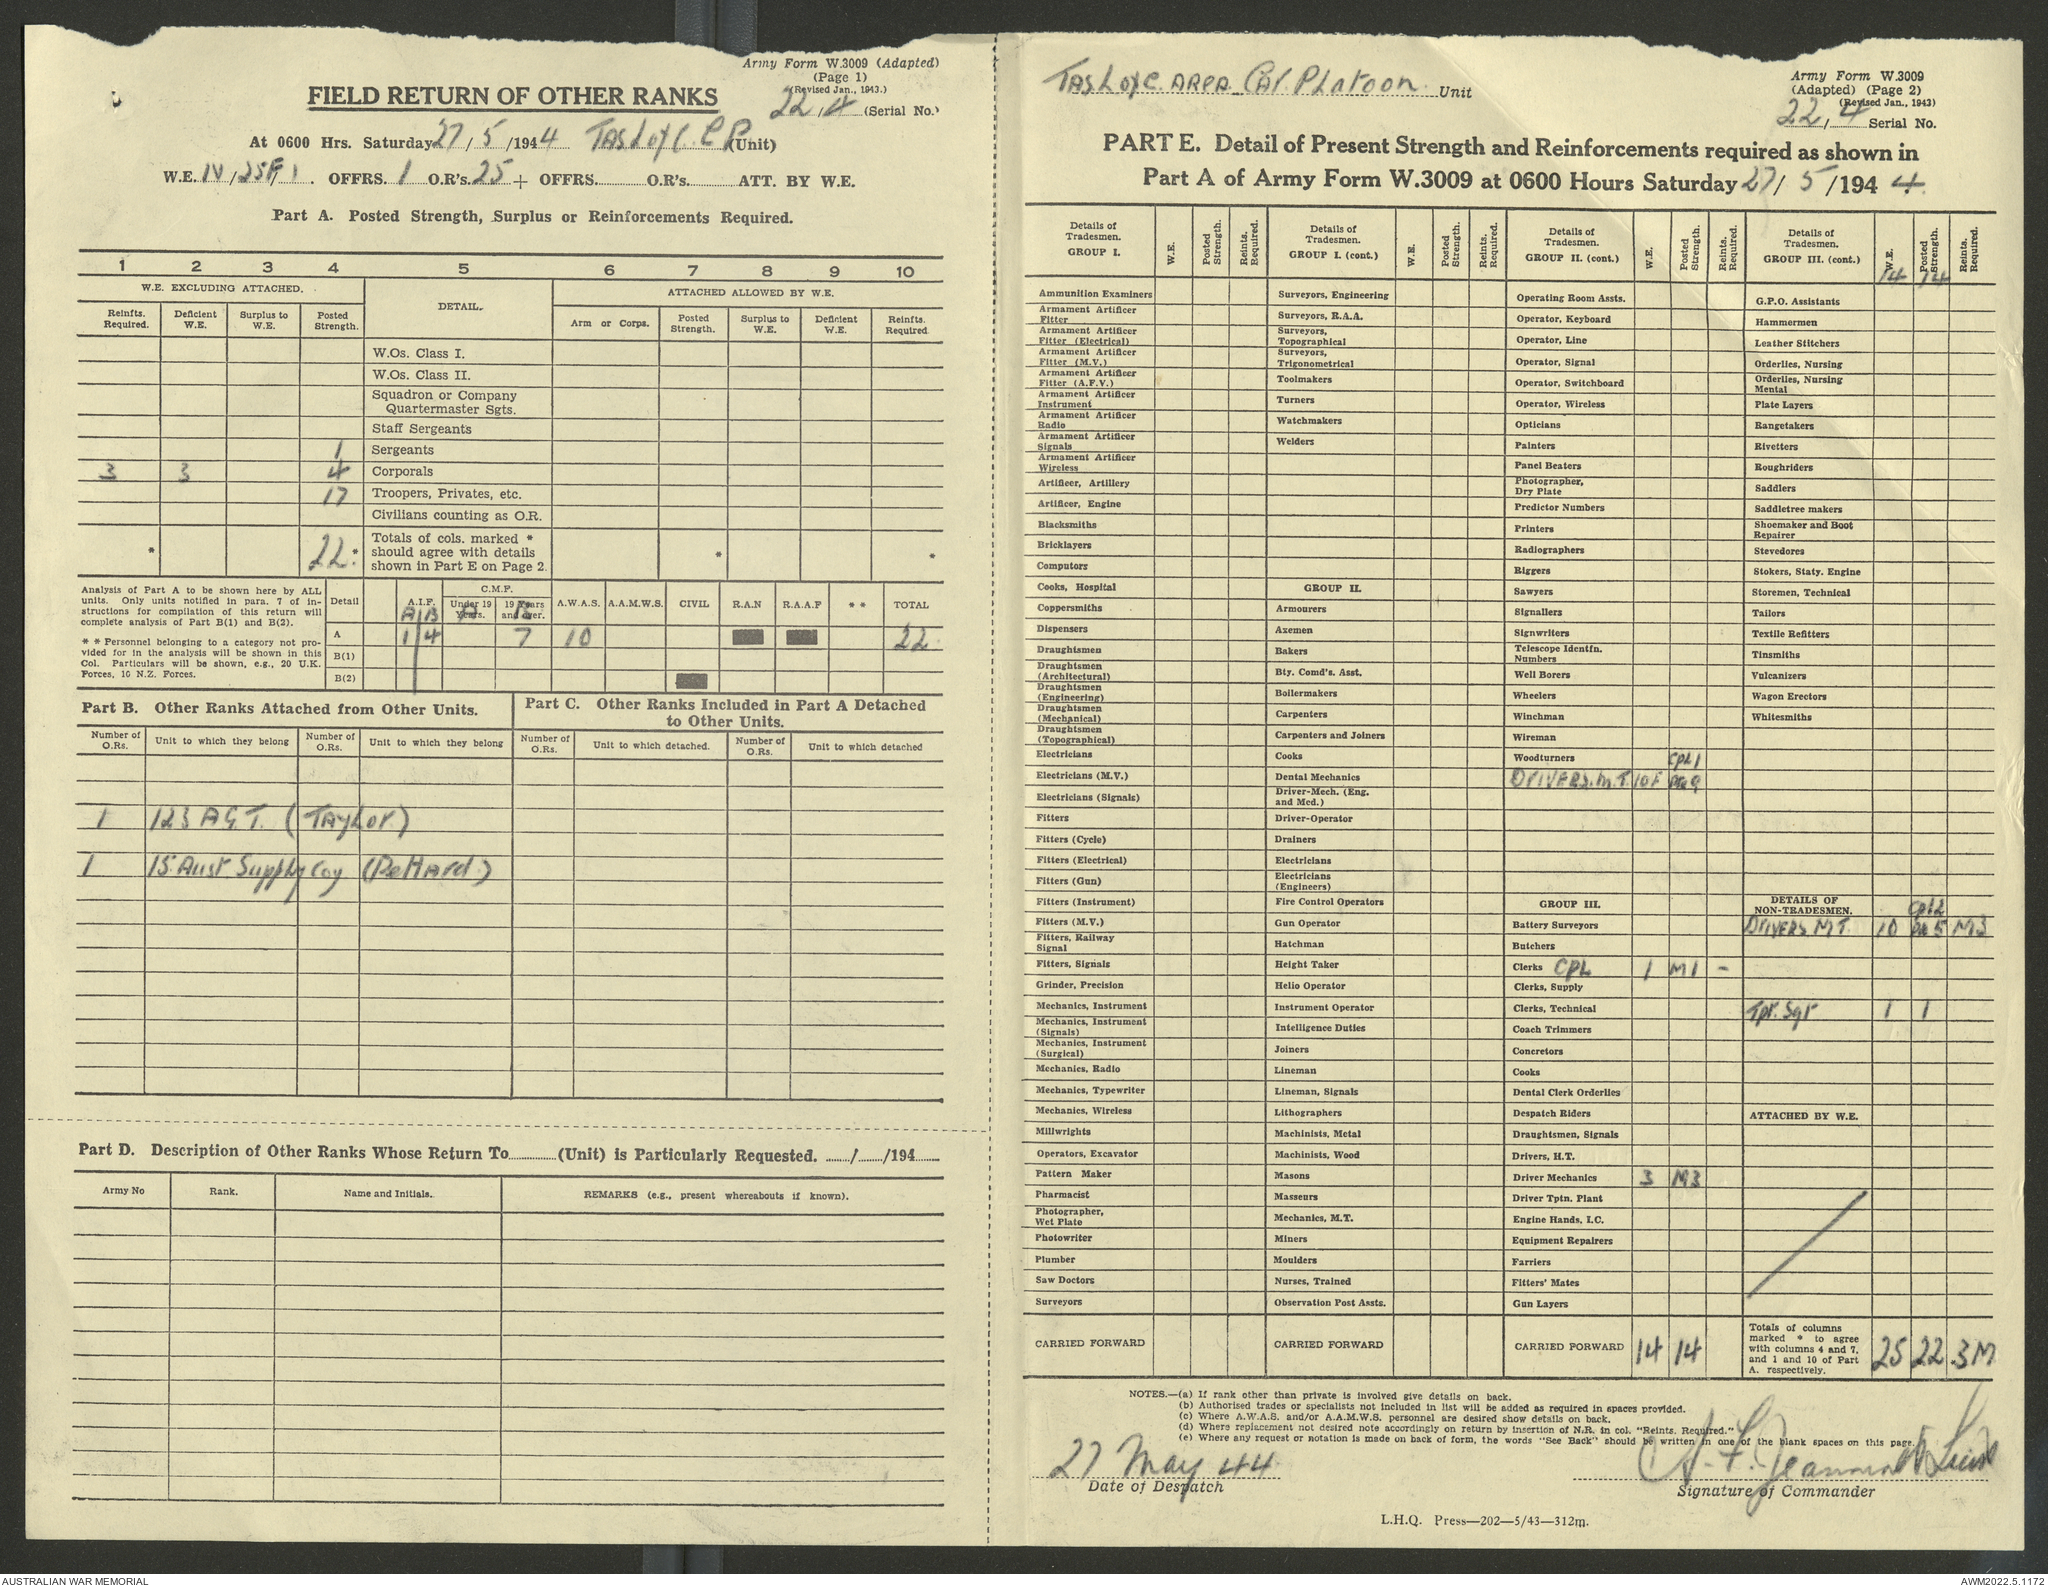 Army Form W.3009 (Adapted)
(Page 1)
(Revised Jan., 1943.)
22/4 (Serial No.)
FIELD RETURN OF OTHER RANKS
At 0600 Hrs. Saturday 27/5/1944 Tas L of C. C P (Unit)
W.E. IV/25F/1. OFFRS. 1 O.R's. 25 + OFFRS. O.R's. ATT. BY W.E.
Part A. Posted Strength, Surplus or Reinforcements Required.
1 2 3 4 5 6 7 8 9 10
W.E. EXCLUDING ATTACHED. DETAIL. ATTACHED ALLOWED BY W.E.
Reinfts. Required. Deficient W.E. Surplus to W.E. Posted Strength. Arm or Corps. Posted Strength. Surplus to W.E. Deficient W.E. Reinfts. Required
W.Os. Class I.
W.Os. Class II.
Squadron or Company
Quartermaster Sgts.
Staff Sergeants
1 Sergeants
3 3 4 Corporals
17 Troopers, Privates, etc.
Civilians counting as O.R.
* 22 * Totals of cols. marked * should agree with details shown in Part E on Page 2. * *
Analysis of Part A to be shown here by ALL
units. Only units notified in para. 7 of in-
structions for compilation of this return will
complete analysis of Part B(1) and B(2).
* * Personnel belonging to a category not pro-
vided for in the analysis will be shown in this
Col. Particulars will be shown, e.g., 20 U.K.
Forces, 10 N.Z. Forces.
Detail A.I.F. C.M.F. Under 19 Years. 19 Years and over. A.W.A.S. A.A.M.W.S. CIVIL R.A.N R.A.A.F * * TOTAL
A B A B
A 1 4 7 10 22
B(1)
B(2)
Part B. Other Ranks Attached from Other Units.
Number of O.Rs. Unit to which they belong Number of O.Rs. Unit to which they belong
1 123 A.G.T. (Taylor)
1 15 Aust Supply Coy
Part C. Other Ranks Included in Part A Detached
to Other Units.
Number of O.Rs. Unit to which detached. Number of O.Rs. Unit to which detached
Part D. Description of Other Ranks Whose Return To (Unit) is Particularly Requested. / /194
Army No Rank. Name and Initials. REMARKS (e.g., present whereabouts if known).
Tas L of C. AREA Car. Platoon Unit
Army Form W.3009
(Adapted) (Page 2)
(Revised Jan., 1943)
22/4 Serial No.
PART E. Detail of Present Strength and Reinforcements required as shown in
Part A of Army Form W.3009 at 0600 Hours Saturday 27/5/1944.
Details of Tradesmen. GROUP I. W.E. Posted Strength. Reints. Required.
Ammunition Examiners
Armament Artificer Fitter
Armament Artificer Fitter (Electrical)
Armament Artificer Fitter (M.V.)
Armament Artificer Fitter (A.F.V.)
Armament Artificer Instrument
Armament Artificer Radio
Armament Artificer Signals
Armament Artificer Wireless
Artificer, Artillery
Artificer, Engine
Blacksmiths
Bricklayers
Computors
Cooks, Hospital
Coppersmiths
Dispensers
Draughtsmen
Draughtsmen (Architectural)
Draughtsmen (Engineering)
Draughtsmen (Mechanical)
Draughtsmen (Topographical)
Electricians
Electricians (M.V.)
Electricians (Signals)
Fitters
Fitters (Cycle)
Fitters (Electrical)
Fitters (Gun)
Fitters (Instrument)
Fitters (M.V.)
Fitters, Railway Signal
Fitters, Signals
Grinder, Precision
Mechanics, Instrument
Mechanics, Instrument (Signals)
Mechanics, Instrument (Surgical)
Mechanics, Radio
Mechanics, Typewriter
Mechanics, Wireless
Millwrights
Operators, Excavator
Pattern Maker
Pharmacist
Photographer, Wet Plate
Photowriter
Plumber
Saw Doctors
Surveyors
CARRIED FORWARD
Details of Tradesmen. GROUP I. (cont.) W.E. Posted Strength. Reints. Required.
Surveyors, Engineering
Surveyors, R.A.A.
Surveyors, Topographical
Surveyors, Trigonometrical
Toolmakers
Turners
Watchmakers
Welders
GROUP II.
Armourers
Axemen
Bakers
Bty. Comd's. Asst.
Boilermakers
Carpenters
Carpenters and Joiners
Cooks
Dental Mechanics
Driver-Mech. (Eng. and Med.)
Driver-Operator
Drainers
Electricians
Electricians (Engineers)
Fire Control Operators
Gun Operator
Hatchman
Height Taker
Helio Operator
Instrument Operator
Intelligence Duties
Joiners
Lineman
Lineman, Signals
Lithographers
Machinists, Metal
Machinists, Wood
Masons
Masseurs
Mechanics, M.T.
Miners
Moulders
Nurses, Trained
Observation Post Assts.
CARRIED FORWARD
Details of Tradesmen. GROUP II. (cont.) W.E. Posted Strength. Reints. Required.
Operating Room Assts.
Operator, Keyboard
Operator, Line
Operator, Signal
Operator, Switchboard
Operator, Wireless
Opticians
Painters
Panel Beaters
Photographer, Dry Plate
Predictor Numbers
Printers
Radiographers
Riggers
Sawyers
Signallers
Signwriters
Telescope Identfn. Numbers
Well Borers
Wheelers
Winchman
Wireman
Woodturners Cpl 1
DRIVERS. M.T. 10F Pte 9
GROUP III.
Battery Surveyors
Butchers
Clerks CPL 1 M1 -
Clerks, Supply
Clerks, Technical
Coach Trimmers
Concretors
Cooks
Dental Clerk Orderlies
Despatch Riders
Draughtsmen, Signals
Drivers, H.T.
Driver Mechanics 3 M3
Driver Tptn. Plant
Engine Hands, I.C.
Equipment Repairers
Farriers
Fitters' Mates
Gun Layers
CARRIED FORWARD 14 14
Details of Tradesmen. GROUP III. (cont.) W.E. Posted Strength. Reints. Required.
14 14
G.P.O. Assistants
Hammermen
Leather Stitchers
Orderlies, Nursing
Orderlies, Nursing Mental
Plate Layers
Rangetakers
Rivetters
Roughriders
Saddlers
Saddletree makers
Shoemaker and Boot Repairer
Stevedores
Stokers, Staty. Engine
Storemen, Technical
Tailors
Textile Refitters
Tinsmiths
Vulcanizers
Wagon Erectors
Whitesmiths
DETAILS OF NON-TRADESMEN. Cpl 2
DRIVERS M.T. 10 Pte 5 M3
Tpt. Sgt 1 1
ATTACHED BY W.E.
Totals of columns marked * to agree with columns 4 and 7, and 1 and 10 of Part A. respectively. 25 22 3M
NOTES.—(a) If rank other than private is involved give details on back.
(b) Authorised trades or specialists not included in list will be added as required in spaces provided.
(c) Where A.W.A.S. and/or A.A.M.W.S. personnel are desired show details on back.
(d) Where replacement not desired note accordingly on return by insertion of N.R. in col. "Reints. Required."
(e) Where any request or notation is made on back of form, the words "See Back" should be written in one of the blank spaces on this page.
27 May 44
Date of Despatch
Lieut
Signature of Commander
L.H.Q. Press—202—5/43—312m.
AUSTRALIAN WAR MEMORIAL
AWM2022.5.1172